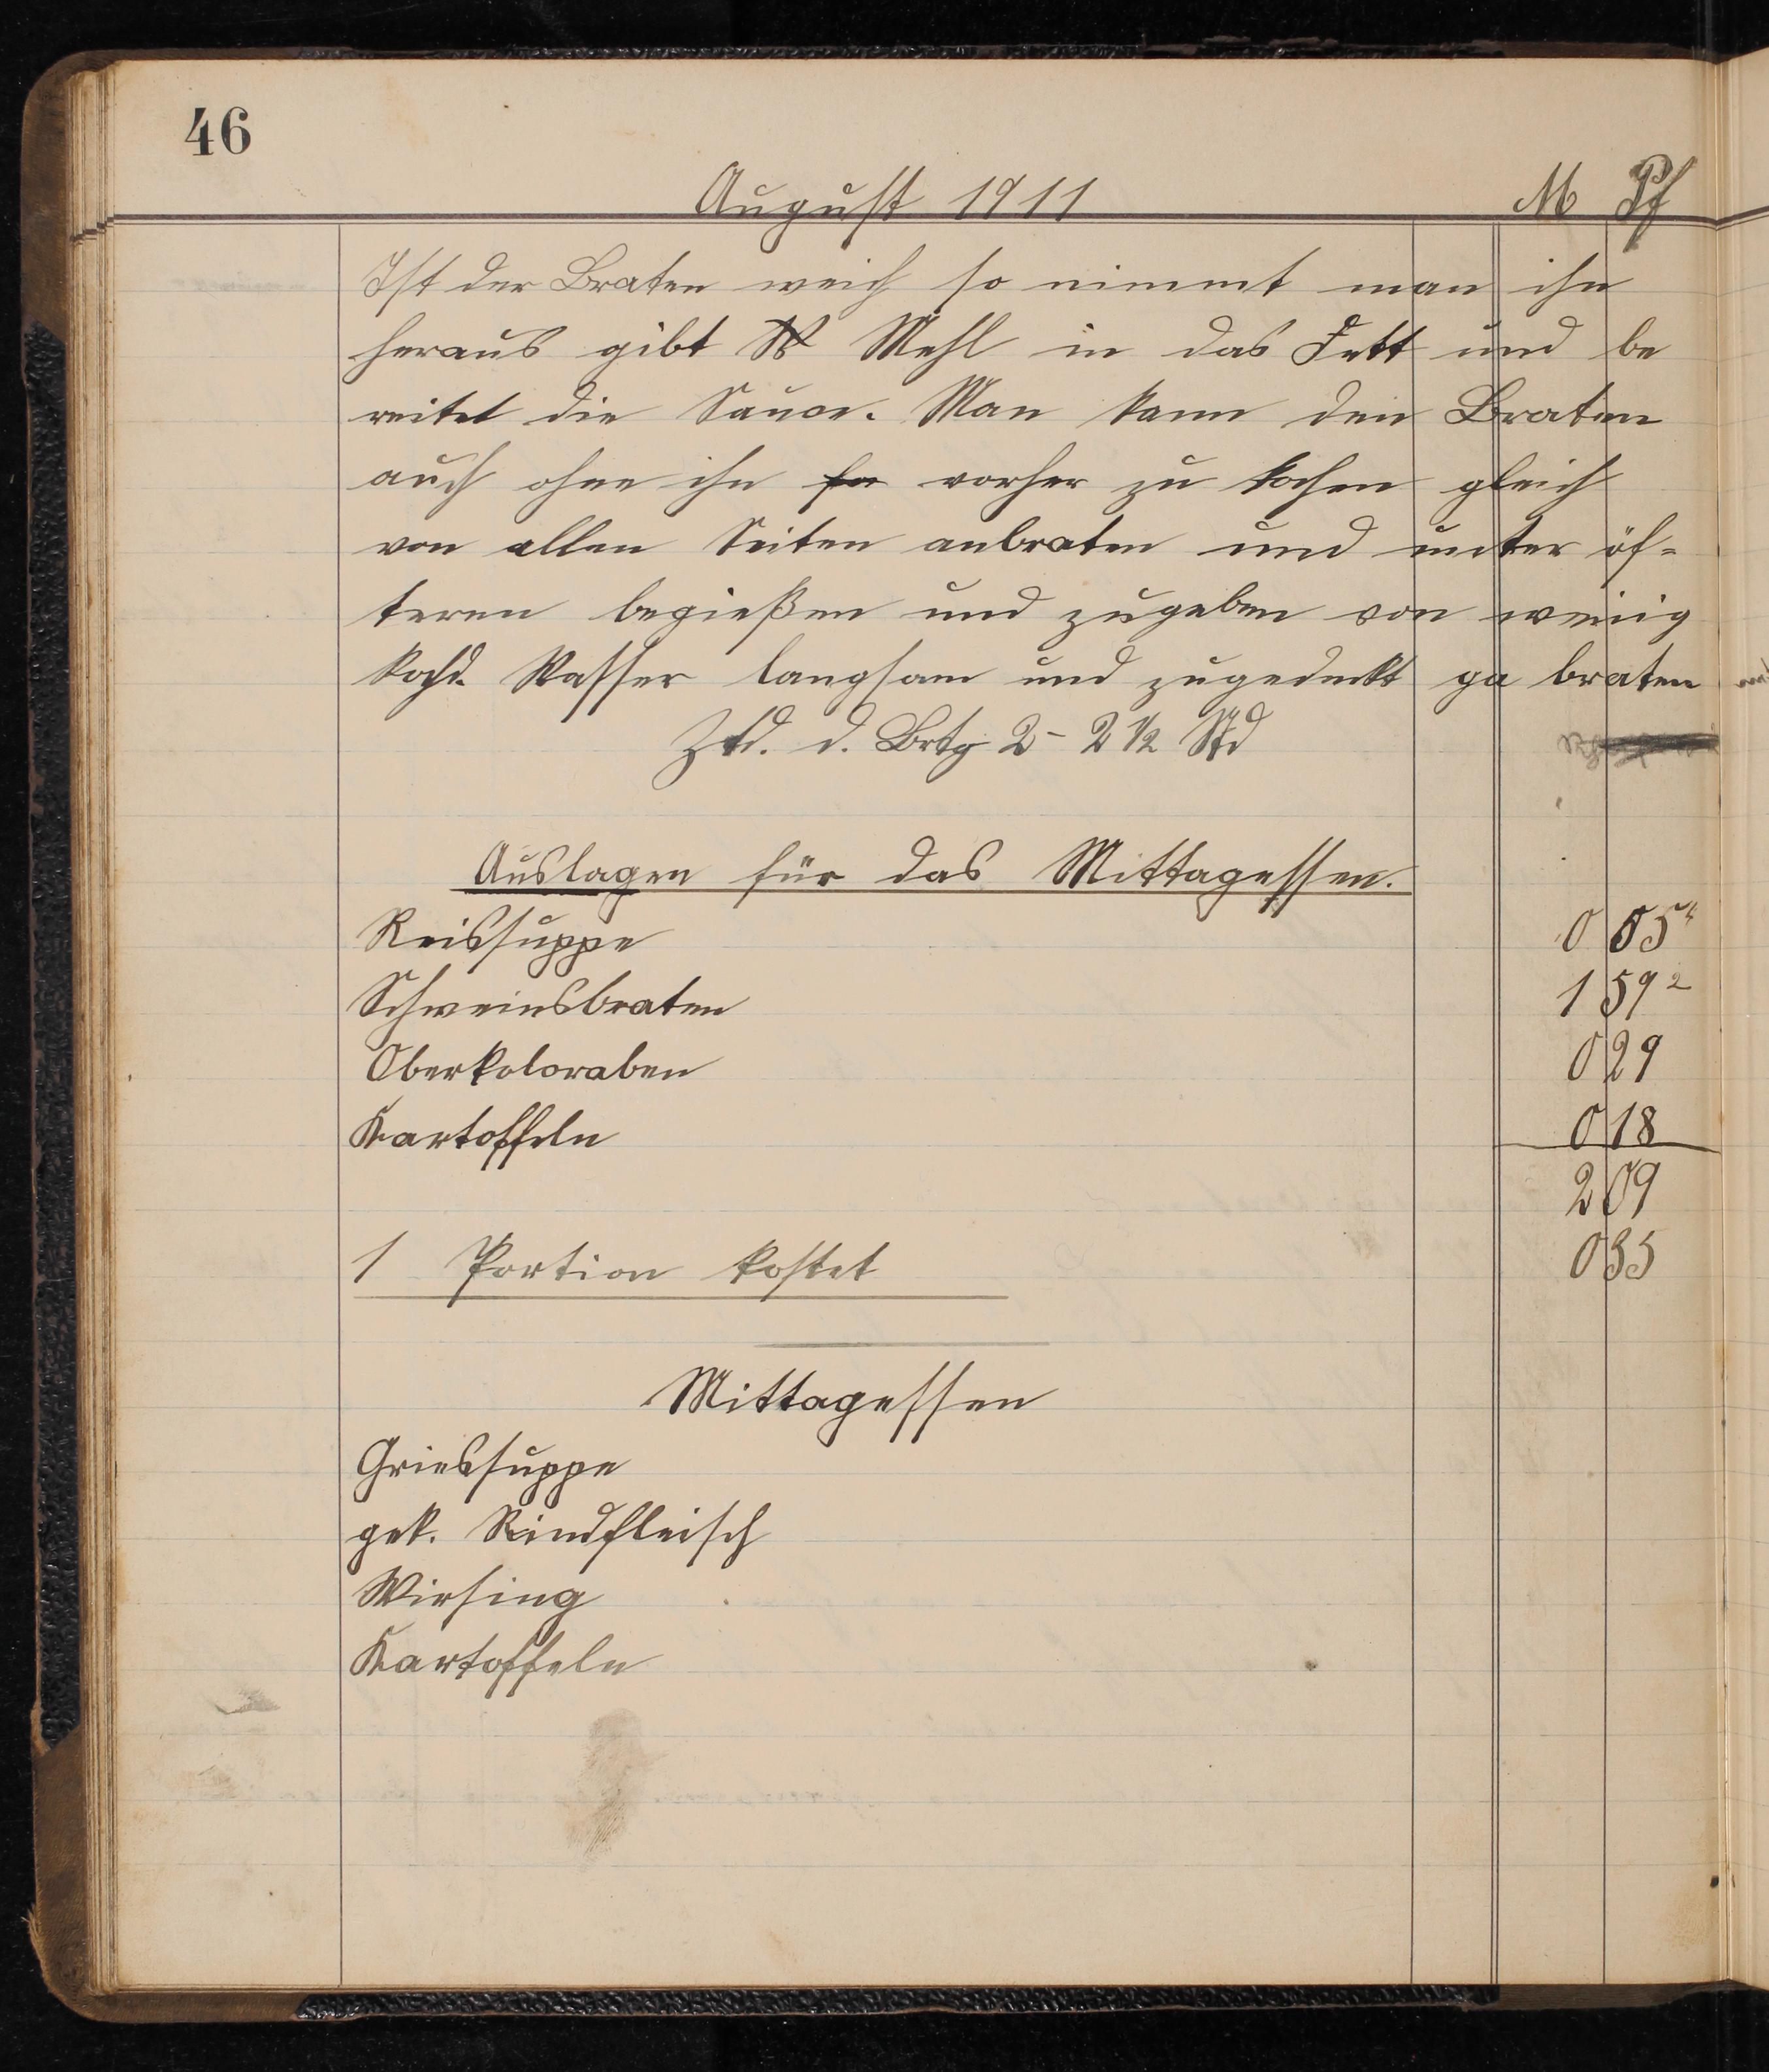 46
August 1911 M Pf
Ist der Braten weich so nimmt man ihn
heraus gibt Mehl in das Fett und be
reitet die Sauce. Man kann den Braten
auch ohne ihn vorher zu kochen gleich
von allen Seiten anbraten und unter öf=
teren begießen und zugeben von wenig
kochd. Wasser langsam und zugedeckt ga braten
Ztd. d. Brtg 2 - 2 1/2 Std
Auslagen für das Mittagessen.
Reissuppe 0 05
Schweinsbraten 1 59 2
Oberkoloraben 0 29
Kartoffeln 0 18
2 09
1 Portion kostet 0 35
Mittagessen
Griessuppe
gek. Rindfleisch
Wirsing
Kartoffeln